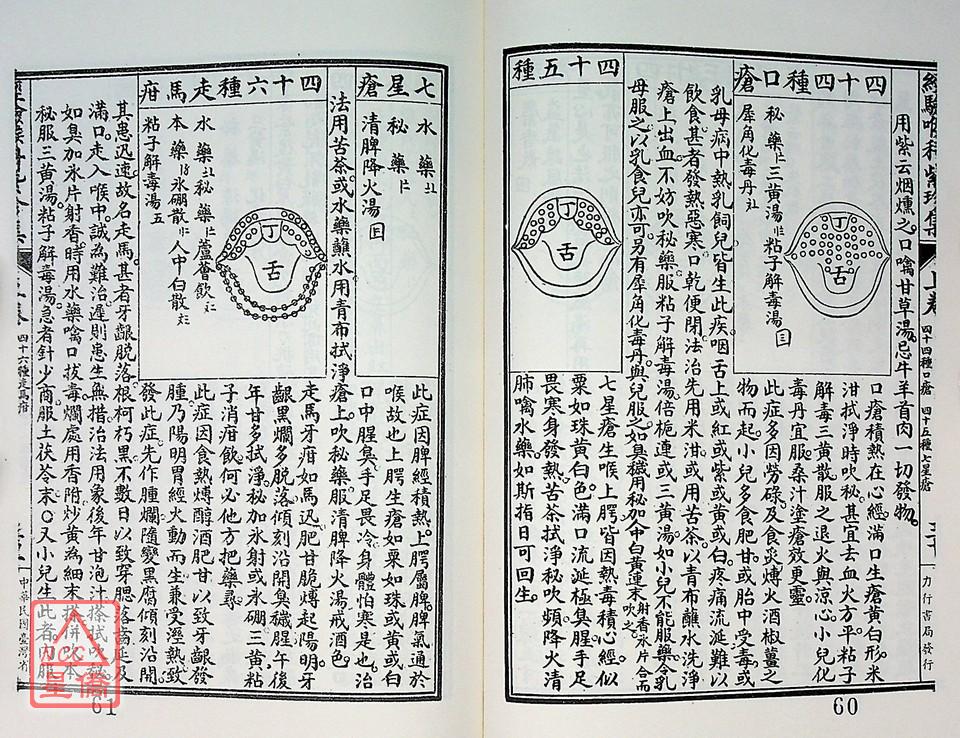 經驗喉科紫珍集
上卷
四十四種口瘡
四十五種七星瘡
力行書局發行
用紫云烟燻之口噙甘草湯忌牛羊首肉一切發物
四十四種口瘡
秘藥
三黃湯
粘子解毒湯
犀角化毒丹
丁
舌
口瘡積熱在心經滿口生瘡黃白形米
泔拭淨時吹秘甚宜去血火方平粘子
解毒三黃散服之退火與涼心小兒化
毒丹宜服桑汁塗瘡效更靈
此症多因勞碌及食炙煿火酒椒薑之
物而起小兒多食肥甘或胎中受毒或
乳母病中熱乳飼兒皆生此疾咽舌上或紅或紫或黃或白疼痛流涎難以
飲食甚者發熱惡寒口乾便閉法治先用米泔或用苦茶以青布蘸水洗淨
瘡上出血不妨吹秘藥服粘子解毒湯倍梔連或三黃湯如小兒不能服藥令乳
母服之以乳食兒亦可另有犀角化毒丹與兒服之如臭穢用秘加人中白黃連末射香氷片合而吹之
四十五種
丁
舌
七星瘡生喉上腭皆因熱毒積心經似
粟如珠黃白色滿口流涎極臭腥手足
畏寒身發熱苦茶拭淨秘吹頻降火清
肺噙水藥如斯指日可回生
60
七星瘡
水藥
秘藥
清脾降火湯
此症因脾經積熱上腭屬脾脾氣通於
喉故也上腭生瘡如粟如珠或黃或白
口中腥臭手足畏冷身體怕寒是也治
法用苦茶或水藥蘸水用青布拭淨瘡上吹秘藥服清脾降火湯戒酒色
四十六種走馬疳
水藥
秘藥
蘆薈飲
本藥
氷硼散
人中白散
粘子解毒湯
丁
舌
走馬牙疳如馬迅肥甘脆煿起陽明牙
齦黑爛多脫落傾刻沿開臭穢腥午後
年甘多拭淨秘加氷射或氷硼三黃粘
子消疳飲何必他方把藥尋
此症因食熱煿醇酒肥甘以致牙齦發
腫乃陽明胃經火動而生兼受溼熱致
發此症先作腫爛隨變黑腐傾刻沿開
其患迅速故名走馬甚者牙齦脫落根柯朽黑不數日以致穿腮落齒延及
滿口走入喉中誠為難治遲則患生無措治法用象後年甘泡汁搽拭吹秘
如臭加氷片射香時用水藥噙口拔毒爛處用香附炒黃為細末搽併吹本
秘服三黃湯粘子解毒湯急者針少商服土茯苓末○又小兒生此者內服
四十六種走馬疳
中華民國臺灣省
61